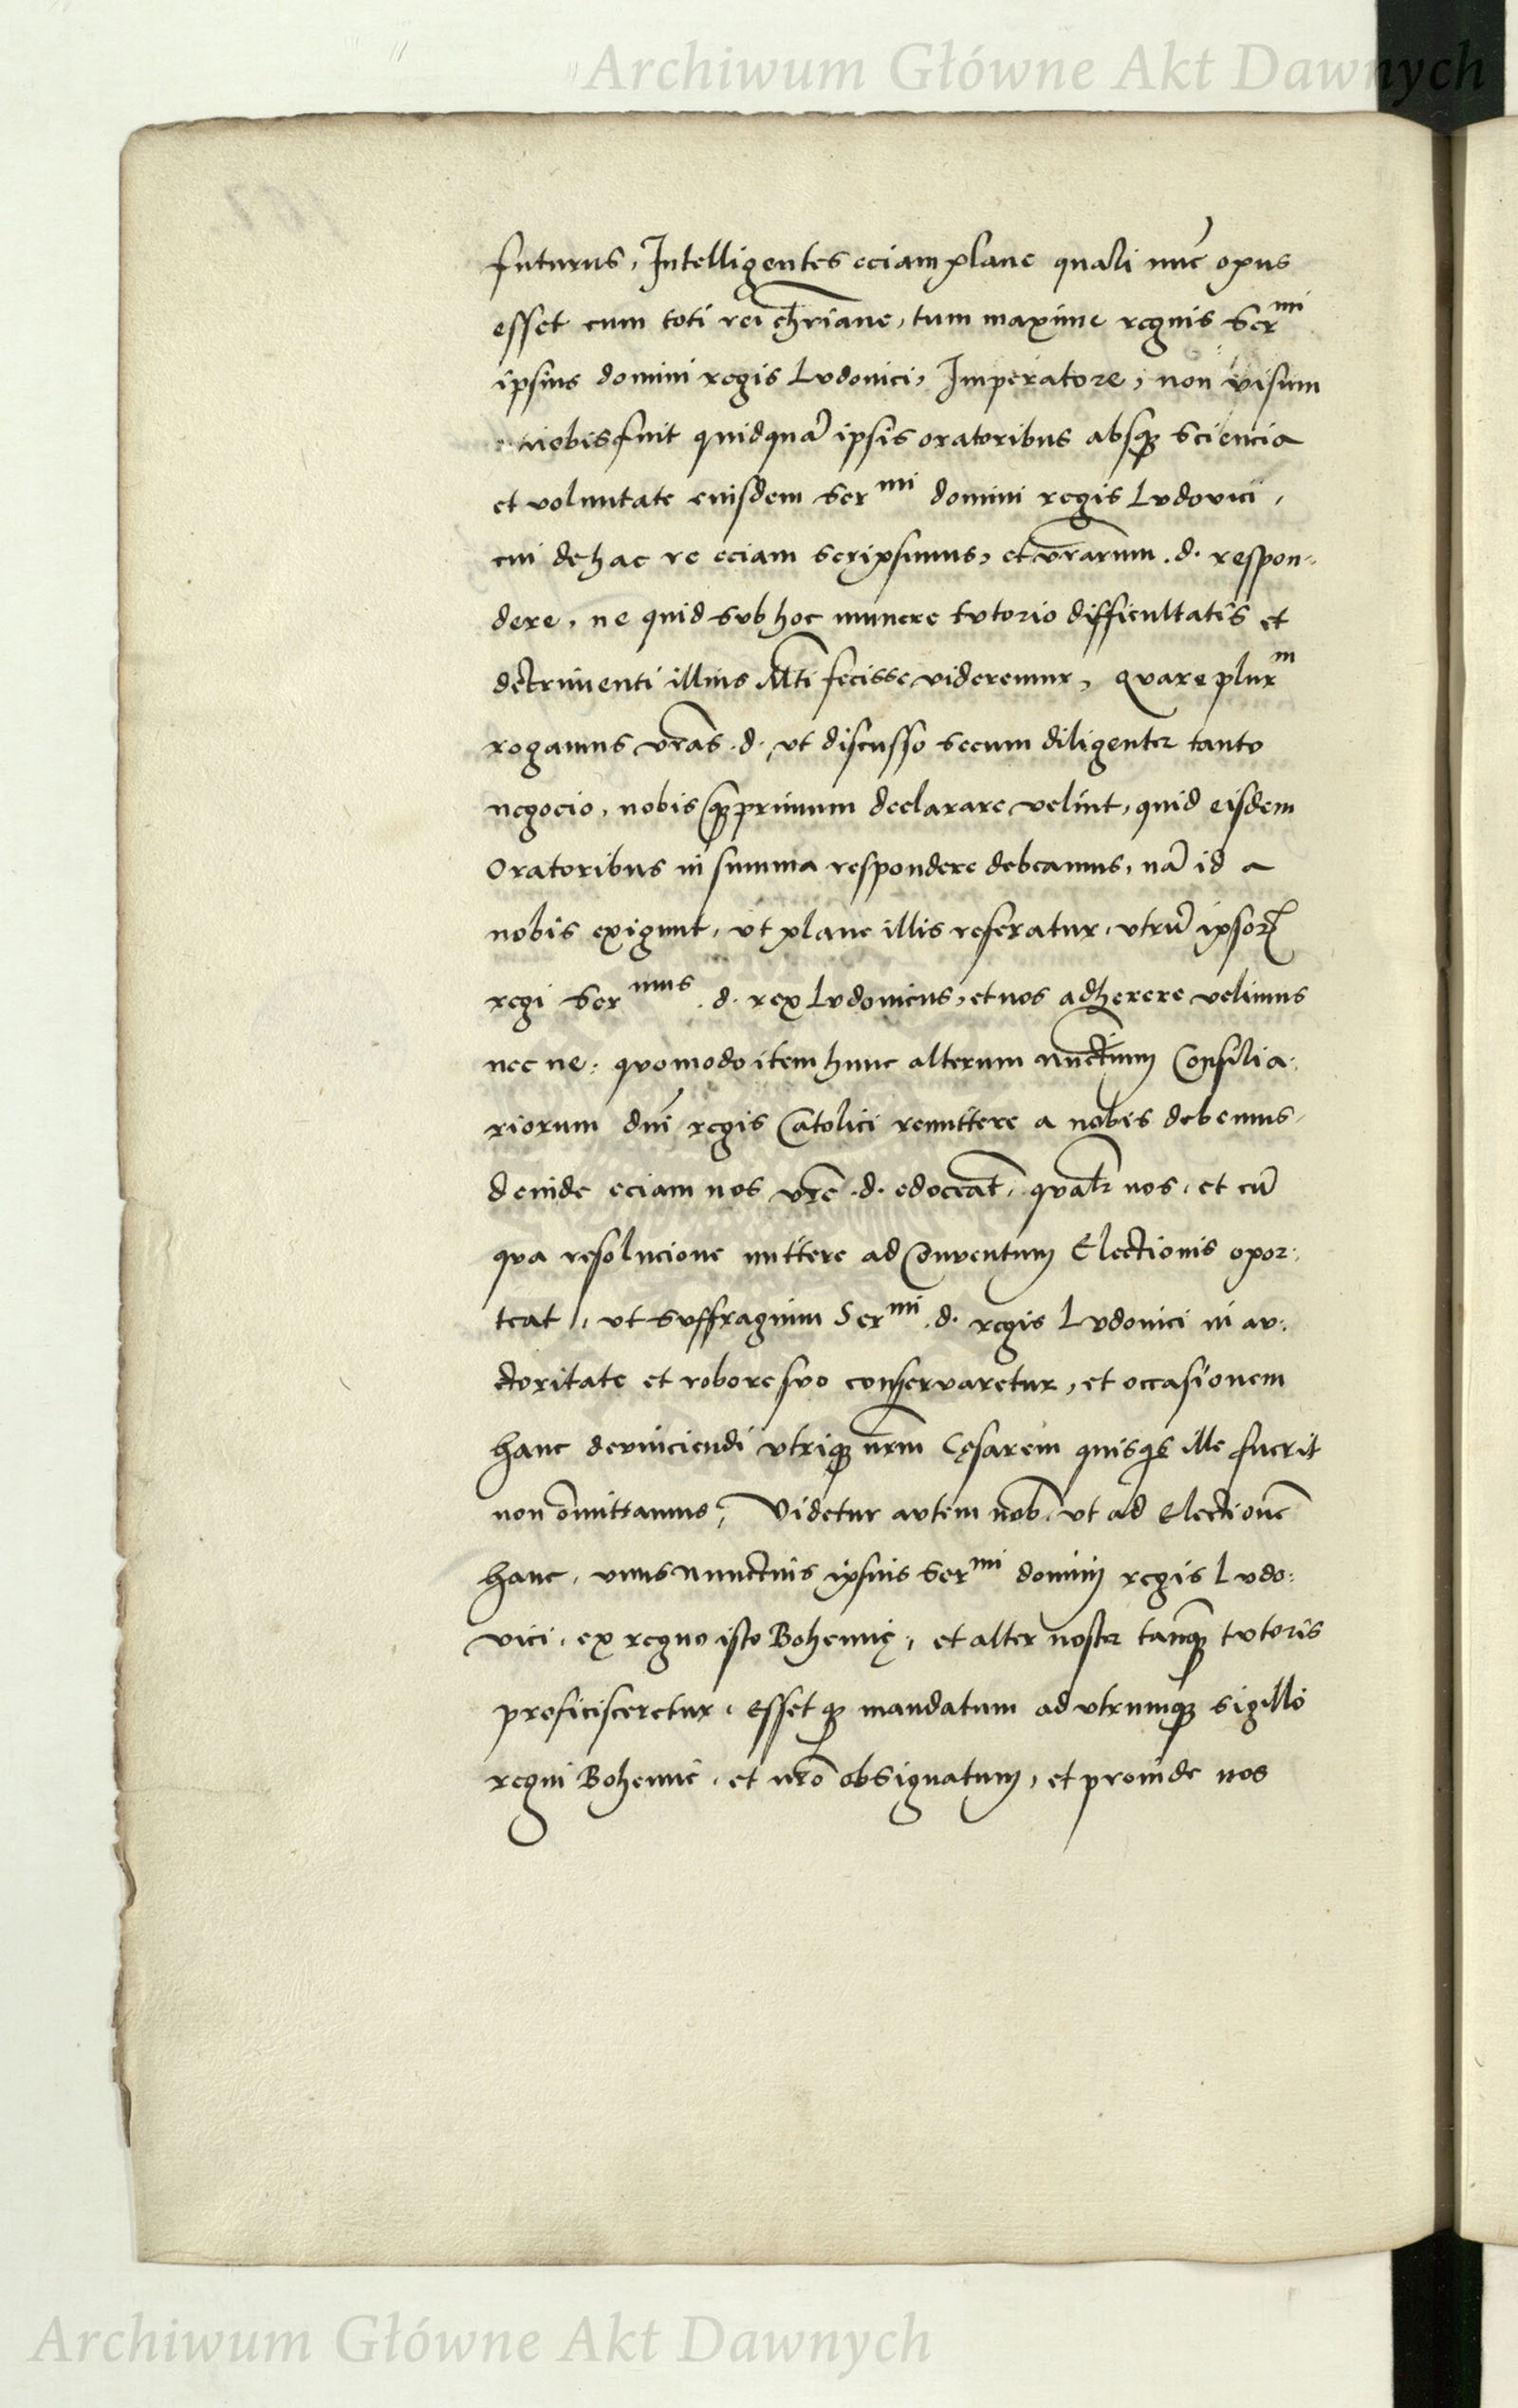 Archiwum Główne Akt Dawnych
futurus, Intelligentes eciam plane quali nũc opus
esset cum toti rei chr̃iane, tum maxime regnis Ser^mi
ipsius domini regis Ludovici, Imperatore, non visum
nobis fuit quidquã ipsis oratoribus absq; sciencia
et voluntate eiusdem Ser^mi domini regis Ludovici,
cui de hac re eciam scripsimus, et vr̃arum .d. respon-
dere, ne quid sub hoc munere tutorio difficultatis et
detrimenti illius Mt̃i fecisse videremur, Quare plur^m
rogamus vr̃as .d. ut discusso secum diligenter tanto
negocio, nobis q̃primum declarare velint, quid eisdem
Oratoribus in summa respondere debeamus, nã id a
nobis exigunt, ut plane illis referatur, utrũ ipsoꝝ
regi Ser^mus .d. rex Ludovicus, et nos adherere velimus
nec ne: quomodo item hunc alterum nunctium Consilia:
riorum dñi regis Catolici remittere a nobis debemus,
deinde eciam nos vr̃e .d. edoceãt, qualr̃ nos, et cũ
qua resolucione mittere ad Conventum Electionis opor:
teat, ut suffragium Ser^mi .d. regis Ludovici in au:
ctoritate et robore suo conservaretur, et occasionem
hanc devinciendi utriq; nr̃m Cęsarem quisq̃s ille fuerit
non õmittamus, Videtur autem nob. ut ad Electionẽ
hanc, unus nunctius ipsius Ser^mi domini regis Ludo:
vici, ex regno isto Bohemię, et alter noster tanq̃ tutoris
proficisceretur, esset q; mandatum ad utrumq; sigillo
regni Bohemie, et nr̃o obsignatum, et proinde nos
Archiwum Główne Akt Dawnych